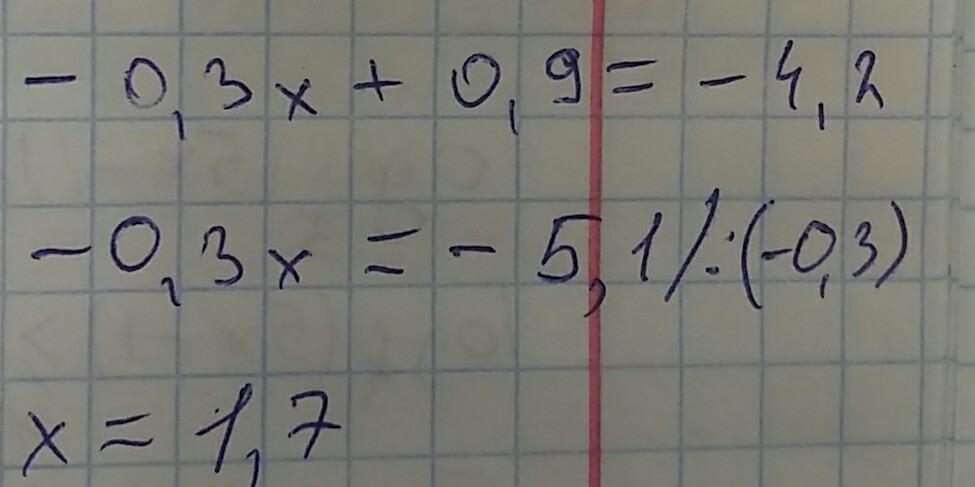 - 0,3x + 0,9 = - 4,2
-0,3x = - 5,1 /:(-0,3)
x = 1,7